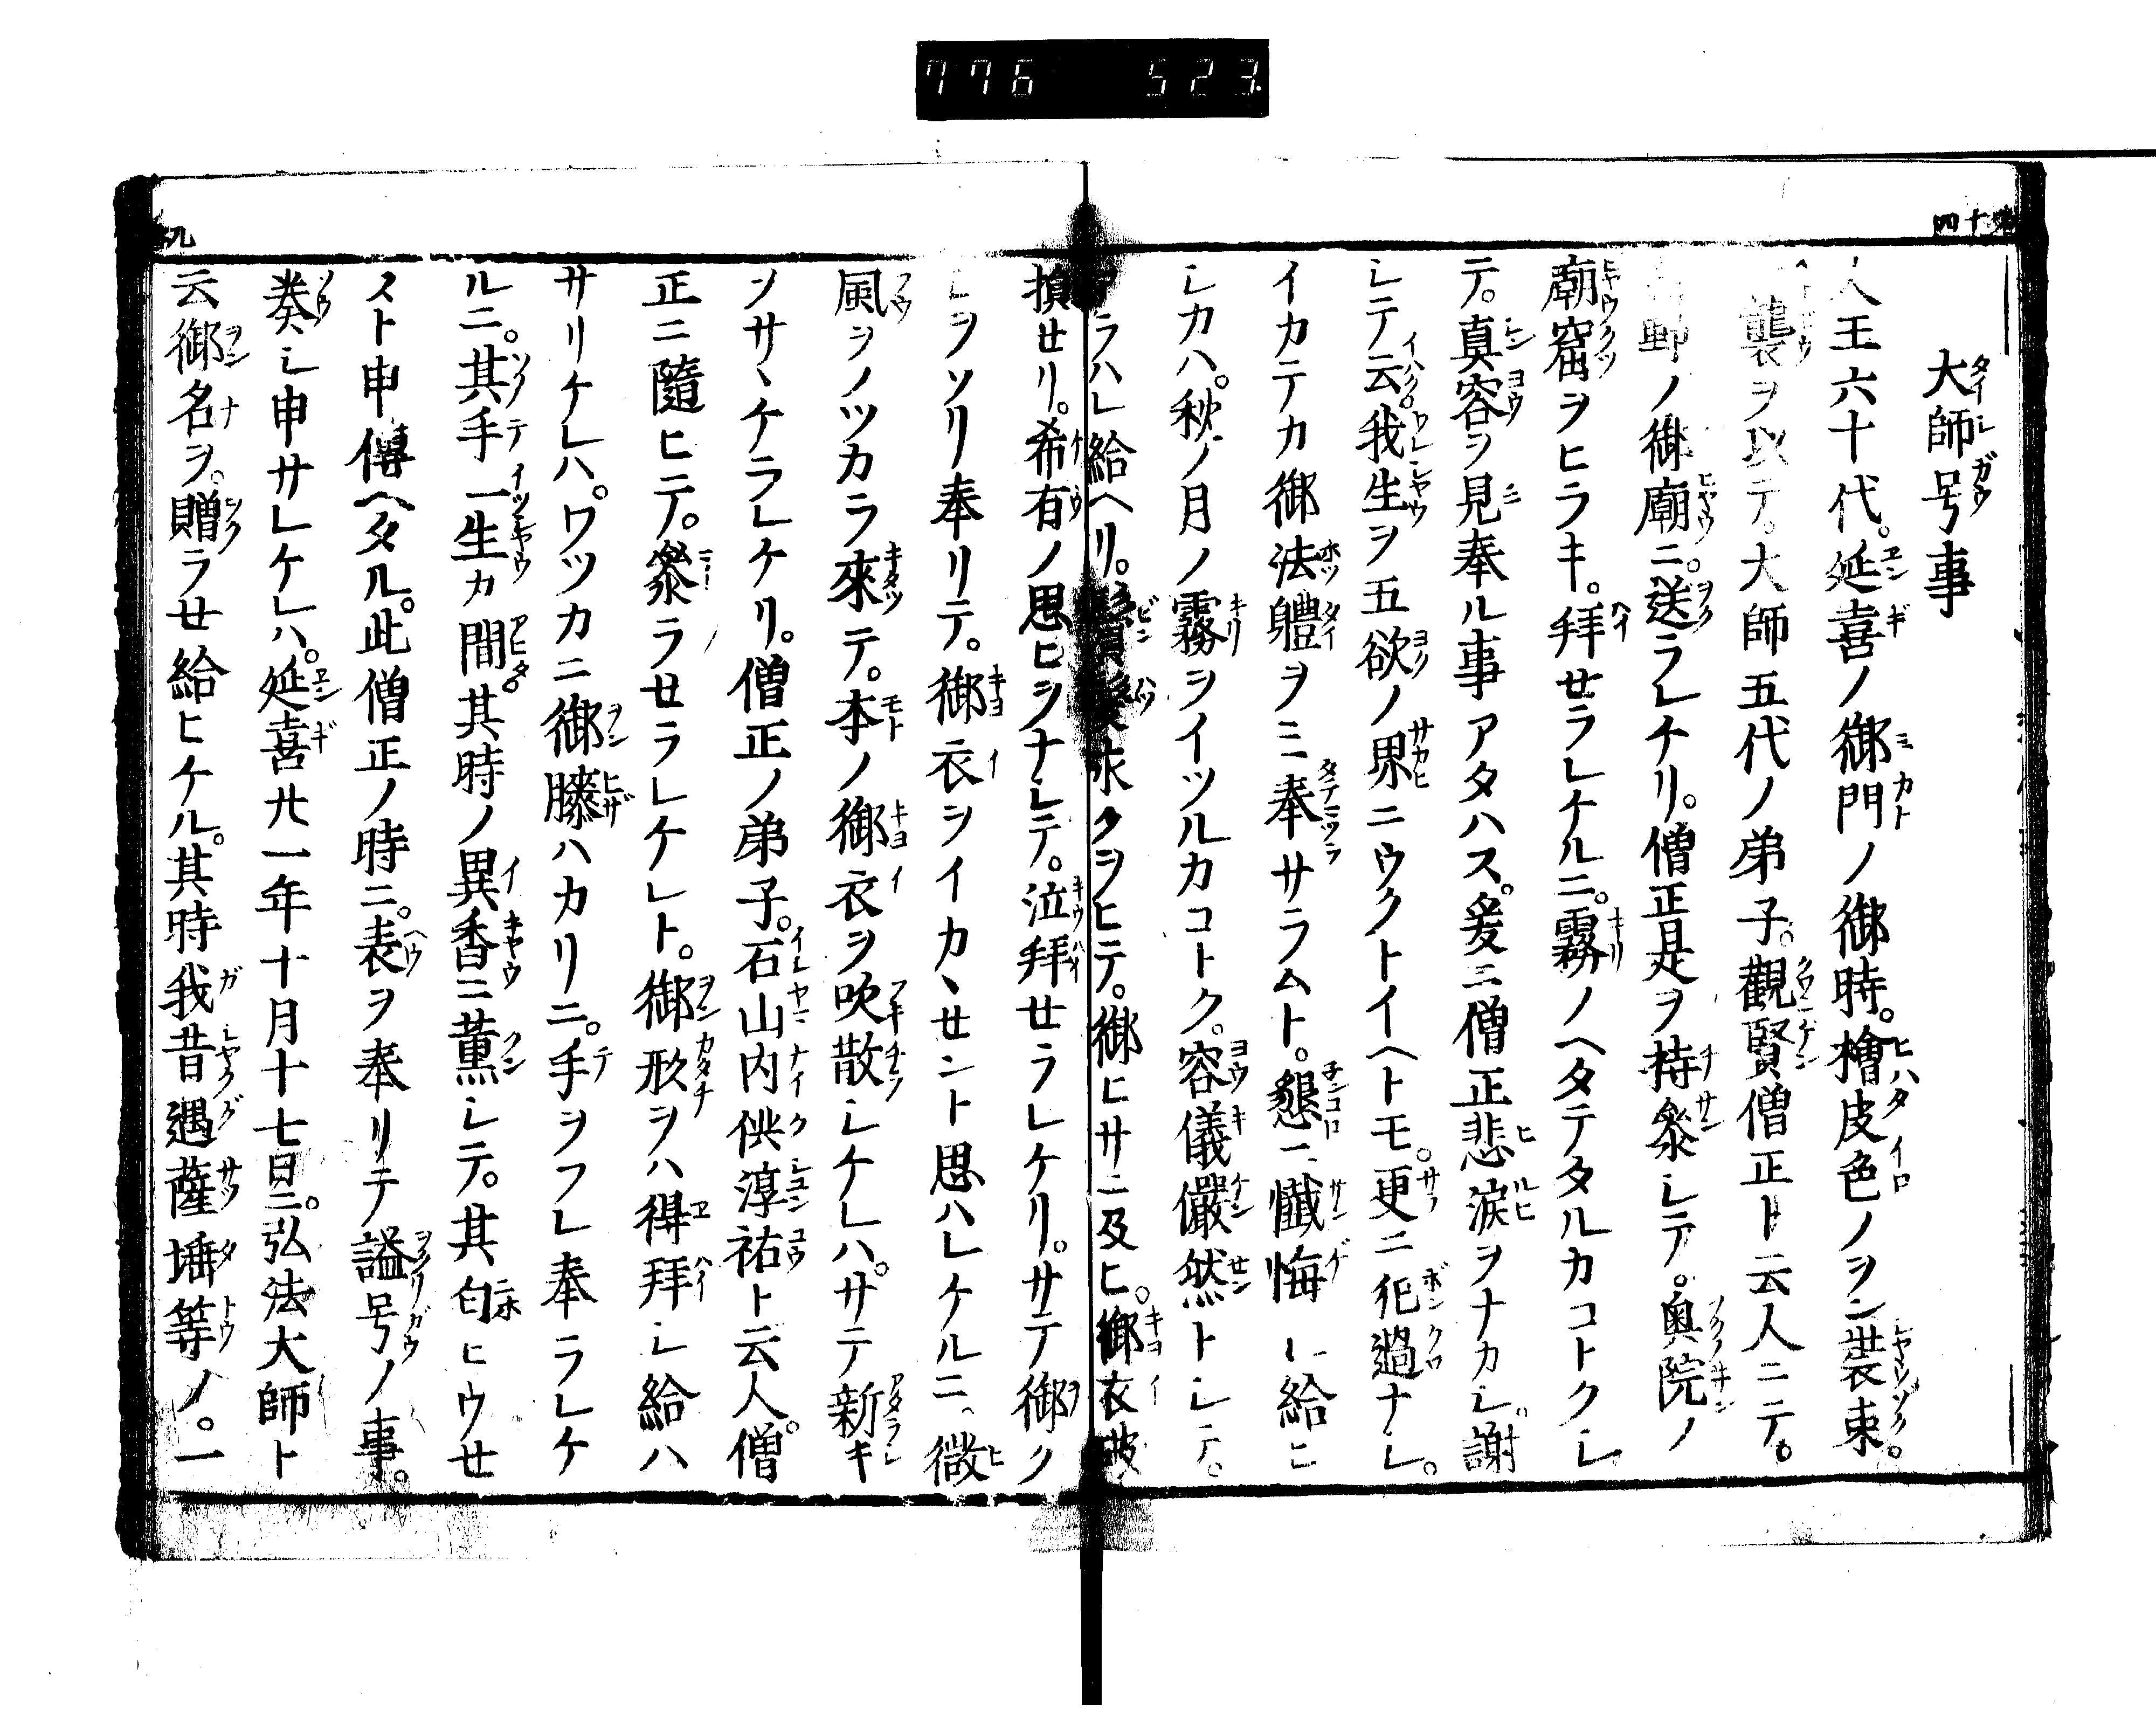 776 523.
四十
大師号事
人王六十代。延喜ノ御門ノ御時。檜皮色ノヲン裝束。
襲ヲ以テ。大師五代ノ弟子。觀賢僧正ト云人ニテ。
野ノ御廟ニ。送ラレケリ。僧正是ヲ持參シテ。奥院ノ
廟窟ヲヒラキ。拜せラレケルニ。霧ノヘタテタルカコトクシ
テ。真容ヲ見奉ル事アタハス。爰ニ僧正悲涙ヲナカシ。謝
シテ云。我生ヲ五欲ノ界ニウクトイヘトモ。更ニ犯過ナシ。
イカテカ御法軆ヲミ奉サラムト。懇ニ懺悔シ給ヒ
シカハ。秋ノ月ノ霧ヲイツルカコトク。容儀儼然トシテ。
ラハレ給ヘリ。鬢髮永クヲヒテ。御ヒサニ及ヒ。御衣破
損せリ。希有ノ思ヒヲナシテ。泣拜せラレケリ。サテ御ク
シヲソリ奉リテ。御衣ヲイカヽせント思ハレケルニ、微
風ヲノツカラ來テ。本ノ御衣ヲ吹散シケレハ。サテ新キ
ヲサヽケラレケリ。僧正ノ弟子。石山内供淳祐ト云人。僧
正ニ隨ヒテ。參ラせラレケレト。御形ヲハ得拜シ給ハ
サリケレハ。ワツカニ御膝ハカリニ。手ヲフレ奉ラレケ
ルニ。其手一生カ間。其時ノ異香ニ薫シテ。其匂ヒウせ
スト申傳ヘタル。此僧正ノ時ニ。表ヲ奉リテ謚号ノ事。
奏シ申サレケレハ。延喜廿一年十月十七日ニ。弘法大師ト
云御名ヲ。贈ラせ給ヒケル。其時我昔遇薩埵等ノ。一
九